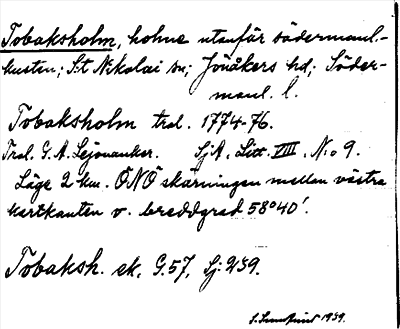 Tobaksholm, holme utanför södermanl.-
kusten; S:t Nikolai sn; Jönåkers hd; Söder-
manl. l.
Tobaksholm trol. 1774-76.
Trol. G. A. Lejonanker. SjA, Litt. VIII, N:o 9.
Läge 2 km. ÖNÖ skärningen mellan västra
kartkanten o. breddgrad 58°40'.
Tobaksh. ek. G.57, Sj: 239.
1939.